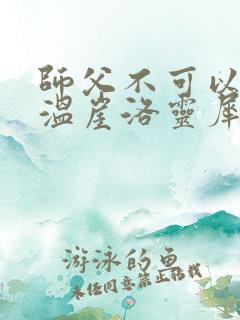 師父不可以
溫崖洛靈犀
游泳的魚
未经同意禁止转载